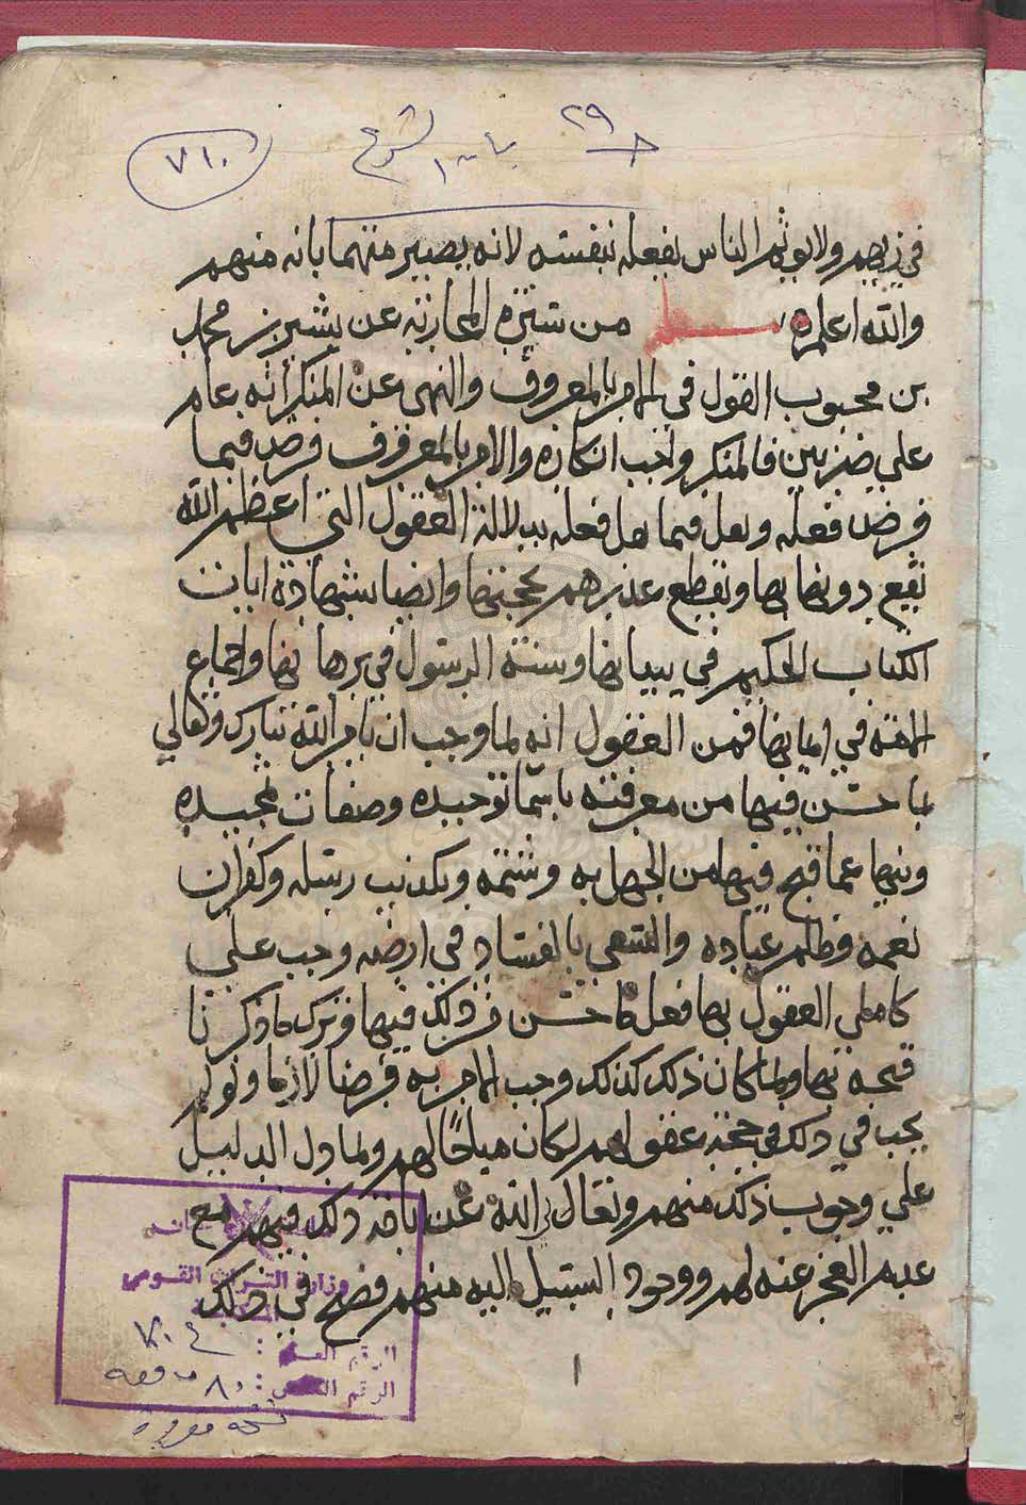 ج ٢٩
بيان الشرع
٧١٠
في زيهم ولا يوثم الناس بفعله بنفسه لانه يصير متهما بانه منهم
والله اعلم ه مسئلة من سيرة المحاربة عن بشير بن محمد
بن محبوب القول في الامر بالمعروف والنهي عن المنكر انه عام
علي ضربين فالمنكر واجب انكاره والامر بالمعروف فرض فيما
فرض فعله ونفل فيما نفل فعله بدلالة العقول التي اعظم الله
نفع دونها بها وتقطع عذرهم بحجتها وايضا بشهادة ايات
الكتاب الحكيم في بيانها وسنة الرسول في برهانها واجماع
الامة في ايمانها فمن العقول انه لما وجب ان يامر الله تبارك وتعالي
بما حسن فيها من معرفته باسما توحيده وصفات تمجيده
ونهيها عما قبح فيها من الجهل به وشتمه وتكذيب رسله وكفران
نعمه وظلم عباده والسعي بالفساد في ارضه وجب علي
كاملي العقول بها فعل ما حسن من ذلك فيها وترك ما ذكرنا
قبحه بها ولما كان ذلك كذلك وجب الامر به فرضا لازما ولو لم
يجب في ذلك في حجة عقولهم لكان مباحا لهم ولما دل الدليل
علي وجوب ذلك منهم وتعالي الله عن اباحة ذلك فيهم مع
عدم العجز عنه لهم ووجود السبيل اليه منهم فصح في ذلك
١
وزارة التراث القومي
الرقم العام :
الرقم الخاص :